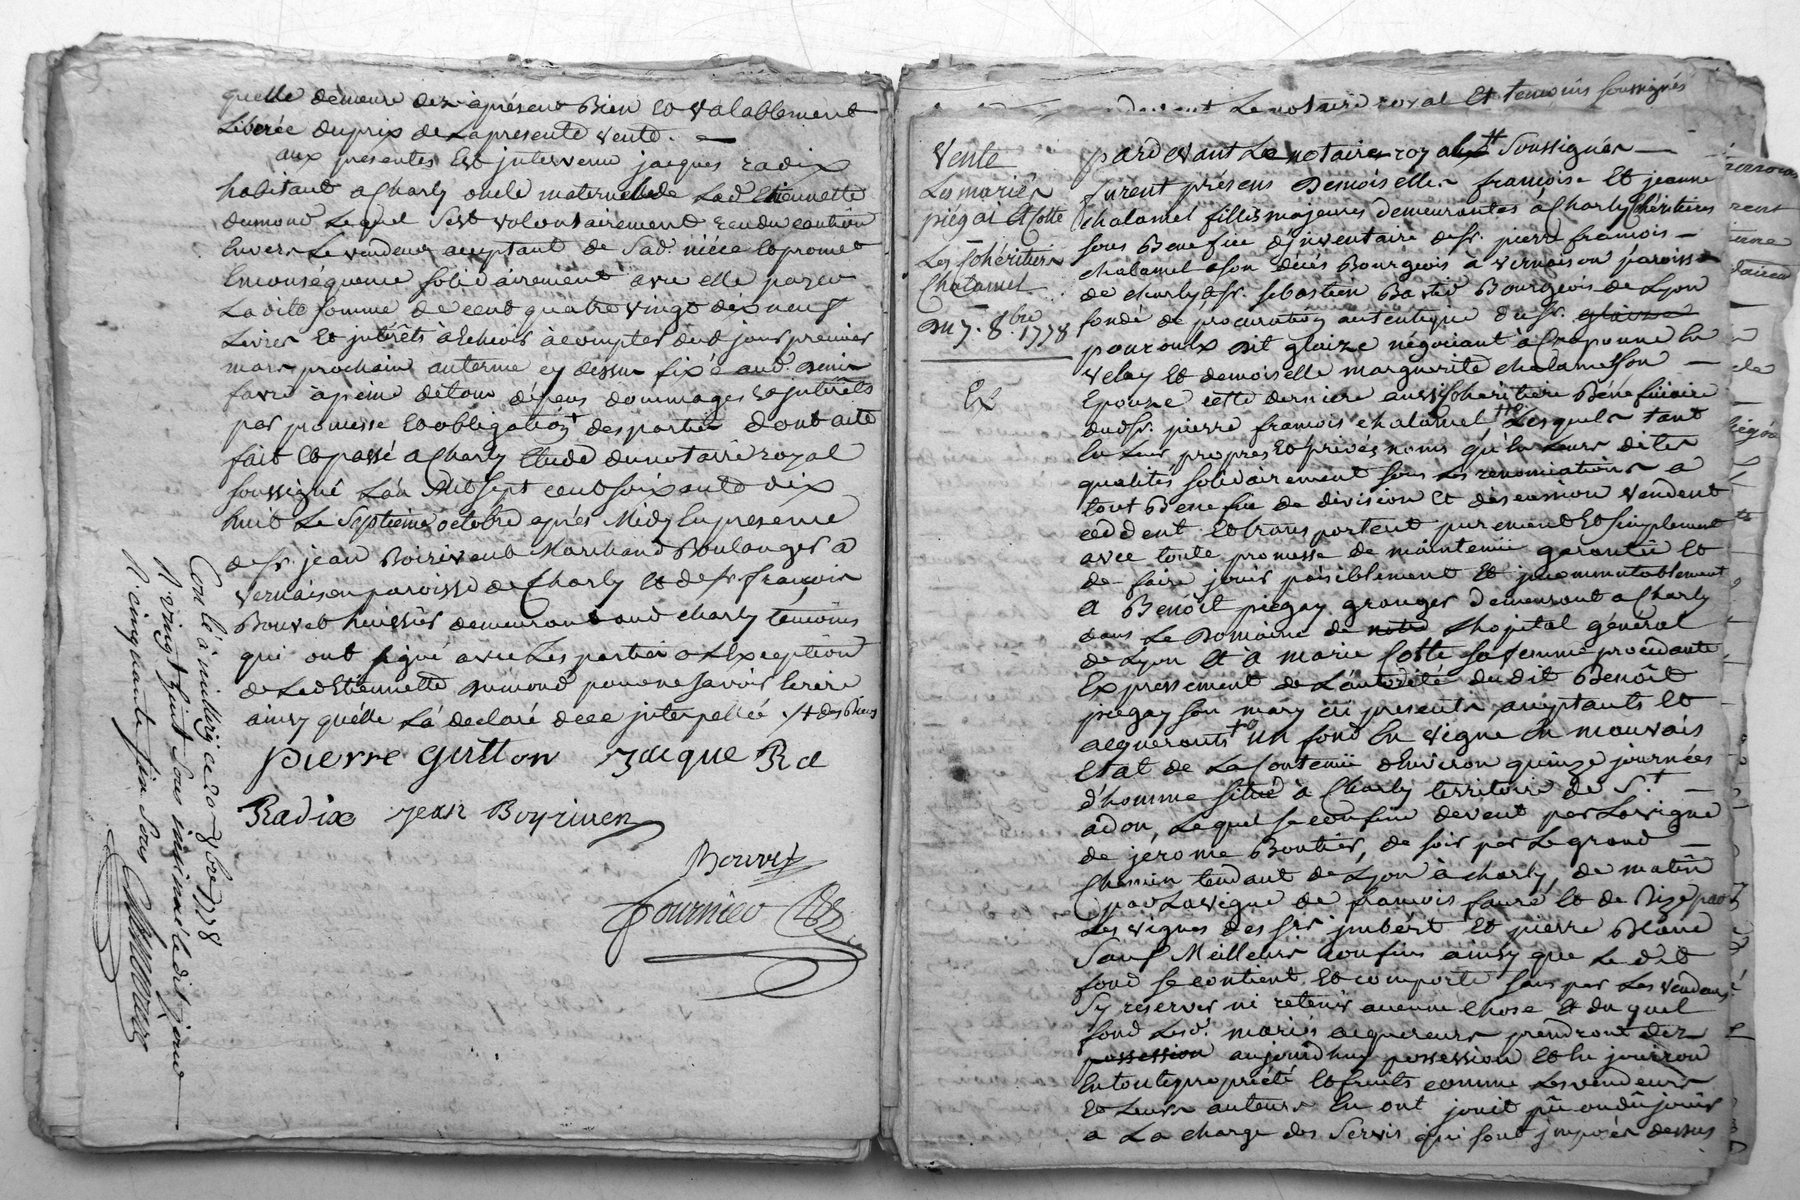 quelle demeure dez àprésent Bien et valablement
Liberée du prix de La presente vente.
aux presentes Est intervenu jacques radix
habitant a Charly oncle maternel de Lad. Etiennette
dumond Lequel s'est volontairement rendu caution
Envers Le vendeur acceptant de Sad. niéce et promet
En consequence solidairement avec elle payer
La dite somme de cent quatre vingt dix neuf
Livres Et intérêts à Echeoir à compter dud. jour premier
mars prochain au terme cy dessus fixé aud. denis
favre à peine de tous dépens dommages et intérêts
par promesse et obligation+ des parties dont acte
fait et passé a Charly Etude du notaire royal
soussigné L'an Mil sept cent soixante dix
huit Le Septieme octobre après Midy En presence
de sr. jean Boirivent Marchand Boulanger à
vernaison paroisse de Charly et de sr. françois
Bouvet huissier demeurant aud. charly temoins
qui ont signé avec Les parties a L'Exception
de Lad. Etiennette dumond pour ne savoir Ecrire
ainsy qu'elle L'a declaré de ce interpellée ./. + des Biens
pierre gutton Jacque Rd
Radix jean Boyriven
Bouvet
fournier
Con lé à millery ce 20 8bre 1778
R vingt huit sous insinué le dit jour
R cinquante six sous
devant Le notaire royal Et temoins soussignés
Vente
Les mariés
piegai Cotte
Les Cohéritiers
Chalamel
du 7. 8.bre 1778
Ex
pardevant Le notaire royal Soussigné
furent présens Demoiselles françoise Et jeanne
chalamel filles majeures demeurantes à Charly Cohéritieres
sous Benefice d'inventaire de sr. pierre françois
chalamel a son décés Bourgeois à vernaison paroisse
de charly, & sr. sebastien Bastid Bourgeois de Lyon
fondé de procuration autentique du sr. glaize
pouroulx dit glaize négociant à Craponne En
velay Et demoiselle marguerite chalamel son
Epouze cette derniere aussy Cohéritiere Bénéficiaire
dud. sr. pierre françois chalamel, Lesquels tant
En Leur propres Et privés noms qu'En Leurs dites
qualités solidairement sous Les renonciations a
tout Benefice de division Et discussion vendent
cèddent Et transportent purement Et simplement
avec toute promesse de maintenir garantir Et
de faire jouir paisiblement Et incommutablement
a Benoît piegay granger demeurant a Charly
dans Le Domaine de notre L'hopital général
de Lyon Et à marie Cotte sa femme procédante
Expressement de L'autorité dudit Benoît
piegay son mary ici presents acceptants Et
acquerants un fond En vigne En mauvais
Etat de La Contenue d'Environ quinze journées
d'homme situé à Charly territoire de St.
adon, Lequel se confine de vent par La vigne
de jérome Boutier, de soir par Le grand
Chemin tendant de Lyon à charly, de matin
par La vigne de françois fauré Et de Bize par
Les vignes des srs jmbért Et pierre Blanc
Sauf Meilleurs confins ainsy que Le dit
fond se contient Et comporte sans par Les vendeurs
s'y reserver ni retenir aucune chose Et du quel
fond Lesd. mariés acquereurs prendront dez
possession aujourdhuy possession Et En jouiront
En toute propriété Et fruits comme Les vendeurs
Et Leurs auteurs En ont jouit pû ou dû jouir
a La charge des Servis qui sont jmposés dessus